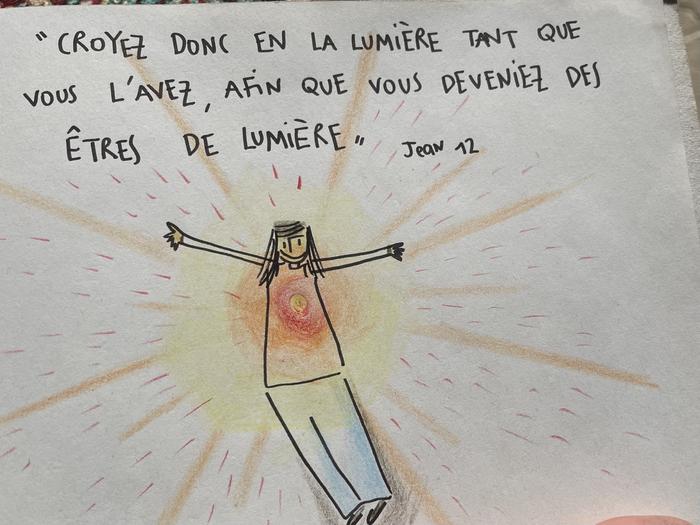 “ CROYEZ DONC EN LA LUMIÈRE TANT QUE
VOUS L'AVEZ, AFIN QUE VOUS DEVENIEZ DES
ÊTRES DE LUMIÈRE „ Jean 12